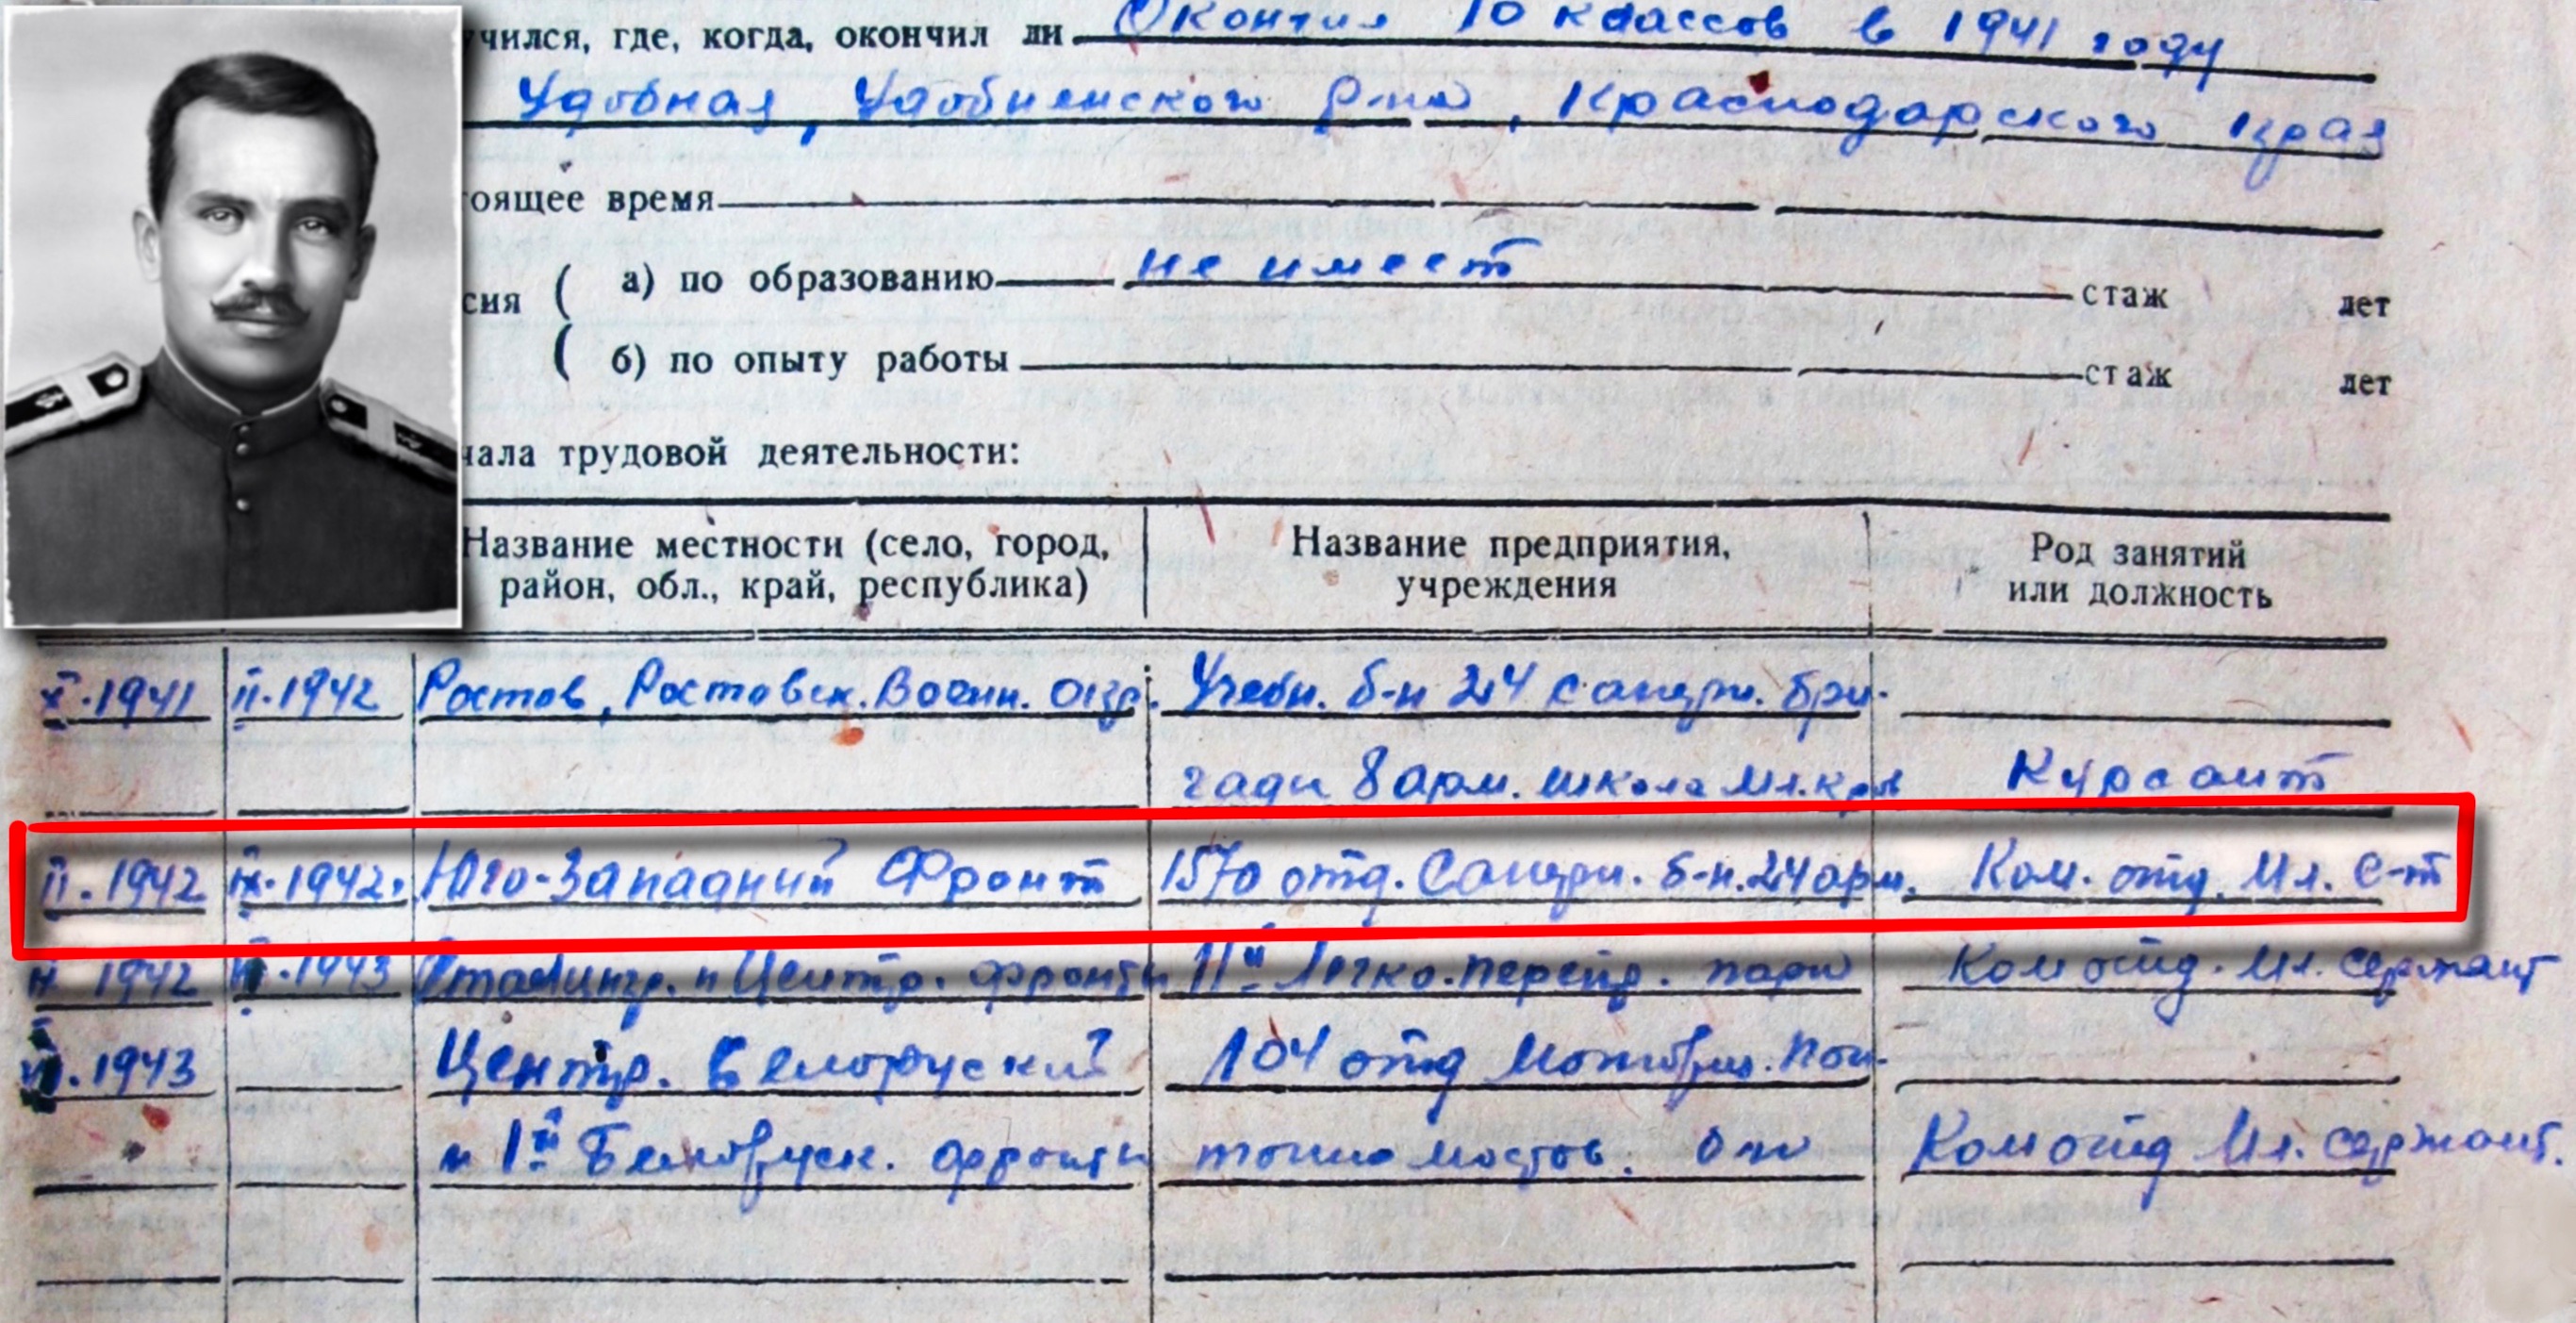 чился, где, когда, окончил ли Окончил 10 классов в 1941 году
Удобная, Удобненского р-на, Краснодарского края
тоящее время
сия ( а) по образованию не имеет стаж лет
( б) по опыту работы стаж лет
чала трудовой деятельности:
Название местности (село, город, район, обл., край, республика) Название предприятия, учреждения Род занятий или должность
X.1941 II.1942 Ростов, Ростовск. Военн. окр. Учебн. б-н 24 саперн. бри-
гади 8 арм. школа мл. к-ров Курсант
II.1942 IX.1942. Юго-Западний Фронт 1570 отд. Саперн. б-н. 24 арм. Ком. отд. Мл. С-т
IX 1942 .1943 Сталингр. и Центр. фронти 11й Легко. перепр. парк Ком отд. Мл. сержант
.1943 Центр. Белоруский 104 отд Моторбр. пон-
и 1й Белорусск. фронти тонно мостов. б-н Ком отд Мл. сержант.